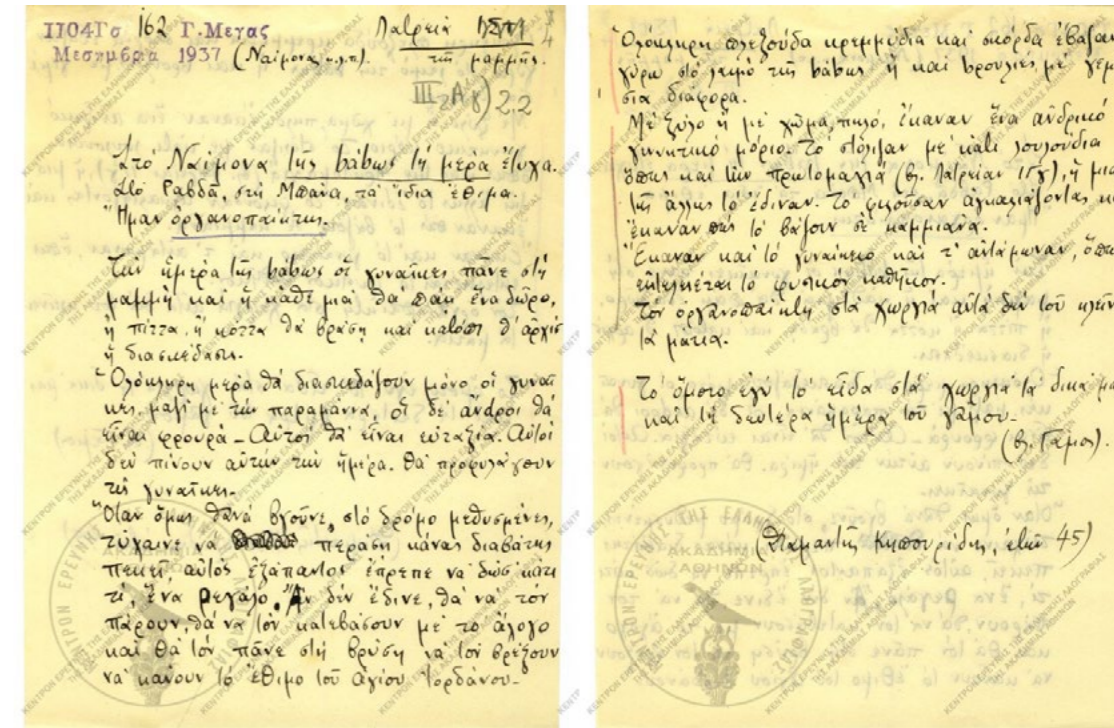 1104Γσ 162 Γ. Μεγας
Μεσημβρια 1937 (Ναίμονα κ.λ.π).
Λατρεία
τῆς μαμμῆς.
III 2 Αγ) 22
Στο Ναίμονα τῆς bάbως τή μερα ἔτυχα.
Στο Ραβδᾶ, στή Μπάνα, τά ἴδια ἔθιμα.
Ἤμαν ὀργανοπαίκτης.
Τήν ἡμερα τῆς bάbως οἱ γυναῖκες πᾶνε στή
μαμμή καί ἡ κάθε μιά θά πάη ἕνα δῶρο,
ἤ πίττα, ἤ κόττα θά βράση καί κατόπι θ' ἀρχίσ
ἡ διασκέδασις.
Ὁλόκληρη μερα θά διασκεδάζουν μόνο οἱ γυναῖ
κες μαζί με τήν παραμάννα, οἱ δέ ἄνdροι θά
εἶναι φρουρά - Αὐτοί θά εἶναι εὐταξία. Αὐτοί
δέν πίνουν αὐτήν τήν ἡμερα. Θά προφυλάγουν
τίς γυναῖκες.
Ὅταν ὅμως θανά βγοῦνε, στό δρόμο μεθυσμένες,
τύχαινε νά περάση κάνας διαβάτης
πεκεῖ, αὐτός ἐξάπαντος ἔπρεπε να δώση κάτι
τί, ἕνα ρεγάλο. Ἄν δεν ἔδινε, θά νά τόν
πάρουν, θά να τόν κατεβάσουν με τό ἄλογο
καί θά τόν πᾶνε στή βρύση νά τόν βρέξουν
νά κάνουν τό ἔθιμο τοῦ ἁγίου Ἰορδάνου -
Ὁλόκληρη πλεξούδα κρεμμύδια καί σκόρδα ἔβαζαν
γύρω στό λαιμό τῆς bάbως ἤ καί
σια διάφορα.
Μέ ξύλο ἤ μέ χῶμα, πηλό, ἔκαναν ἕνα ἀνδρικό
γεννητικό μόριο. Το στόλιζαν με κάτι λουλούδια
ὅπως καί τήν πρωτομαγιά (βλ. Λατρείαν ), ἡ μια
τῆς ἄλλης τό ἔδιναν. Το φιλοῦσαν ἀγκαλιάζοντας κα
ἔκαναν πώς τό βάζουν σέ καμμιανα.
Ἔκαναν καί τό γυναίκειο καί τ' ἀντάμωναν, ὅπως
ἐκτελεῖται τό φυσικόν καθῆκον.
Τόν ὀργανοπαίκτη στά χωριά αὐτά δεν τοῦ κλείν
τά μάτια.
Τό ὅμοιο ἐγώ τό εἶδα στά χωριά τά δικά μα
καί τή δευτέρα ἡμέρα τοῦ γάμου -
(βλ. Γάμος).
(Διαμαντῆς Κηπουρίδης, ἐτῶν 45)
ΚΕΝΤΡΟΝ ΕΡΕΥΝΗΣ ΤΗΣ ΕΛΛΗΝΙΚΗΣ ΛΑΟΓΡΑΦΙΑΣ
ΑΚΑΔΗΜΙΑ
ΑΘΗΝΩΝ